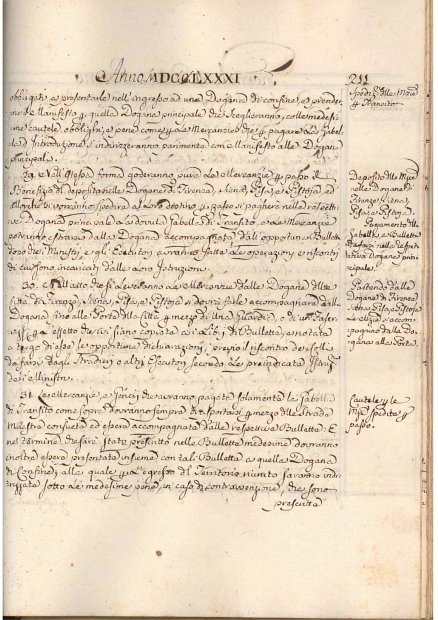 Anno MDCCLXXXI
211
obbligate a presentarle nell'ingresso ad una Dogana di confine, e prender
il Manifesto p quella Dogana principale che sceglieranno, colle medesi
me cautele obblighi, e pene come p le Mercanzie che p pagare la Gabel
la d'Introduzione s'indirizzeranno parimente con Manifesto alle Dogane
principali.
29. Nell'istessa forma goderanno pure le Mercanzie p passo il
Benefizio di deposito nelle Dogane di Firenze, Siena, Pisa, e Pistoja, ed
allorchè si vorranno spedire al loro destino p passo si pagherà nella rispetti
va Dogana principale la dovuta Gabella di Transito, e le Mercanzie
potranno estrarsi dalla Dogana accompagnate dall'opportuna Bulletta
dopo che i Ministri, e gli Esecutori avranno fatta le operazioni e riscontri
di cui sono incaricati dalle loro Istruzioni.
30. All'atto che si leveranno le Mercanzie dalle Dogane delle
Città di Firenze, Siena, Pisa, e Pistoja si dovrà farle accompagnare dalla
Dogana sino alle Porte della Città p mezzo di una Guardia, o di un
p l'effetto che vi siano copiate ai Libri di Bullette, e notate
a tergo di esse le opportune dichiarazioni, previo il riscontro dei bolli
da farsi dagli Stradieri o altri Esecutori secondo le preindicate Istruz
dei Ministri.
31. Le Mercanzie, e Generi che avranno pagata solamente la Gabella
di Transito come sopra dovranno sempre trasportarsi p mezzo della Strada
Maestra consueta ed essere accompagnate dalla respettiva Bulletta: E
nel termine che sarà stato prescritto nelle Bullette medesime dovranno
inoltre essere presentate insieme con tali Bullette a quella Dogana
di Confine, alla quale p l'egresso del Territorio riunito saranno indi
rizzate sotto le medesime pene, in caso di contravvenzione, che sono
prescritte
Spediz.e delle Merci
p Transito
Deposito delle Merci
nelle Dogane di
Firenze, Siena,
Pisa, e Pistoja.
Pagamento della
Gabella e Bulletta
da farsi nella Respet
tiva Dogana prin
cipale.
Partenza dalle
Dogane di Firenze
Siena, Pisa, e Pistoja
e Merci si accom
pagnino dalla Do
gana alla Porta.
Cautele p le
Merci spedite p
passo.